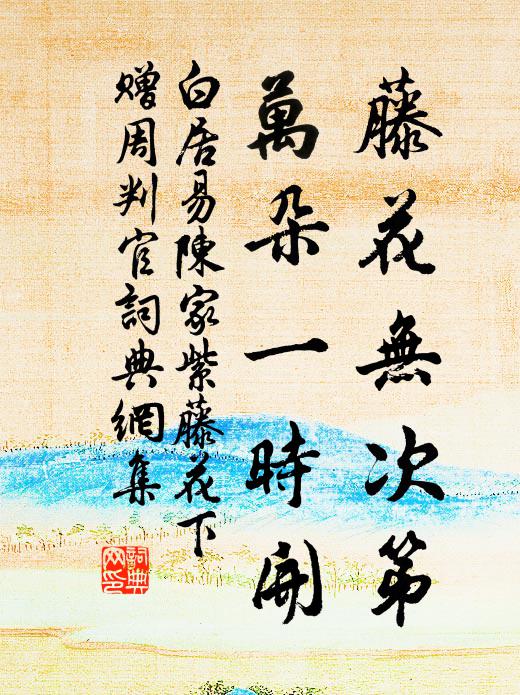 藤花無次第
萬朵一時開
白居易陳家紫藤花下
贈周判官詞典網集
詞典
网印